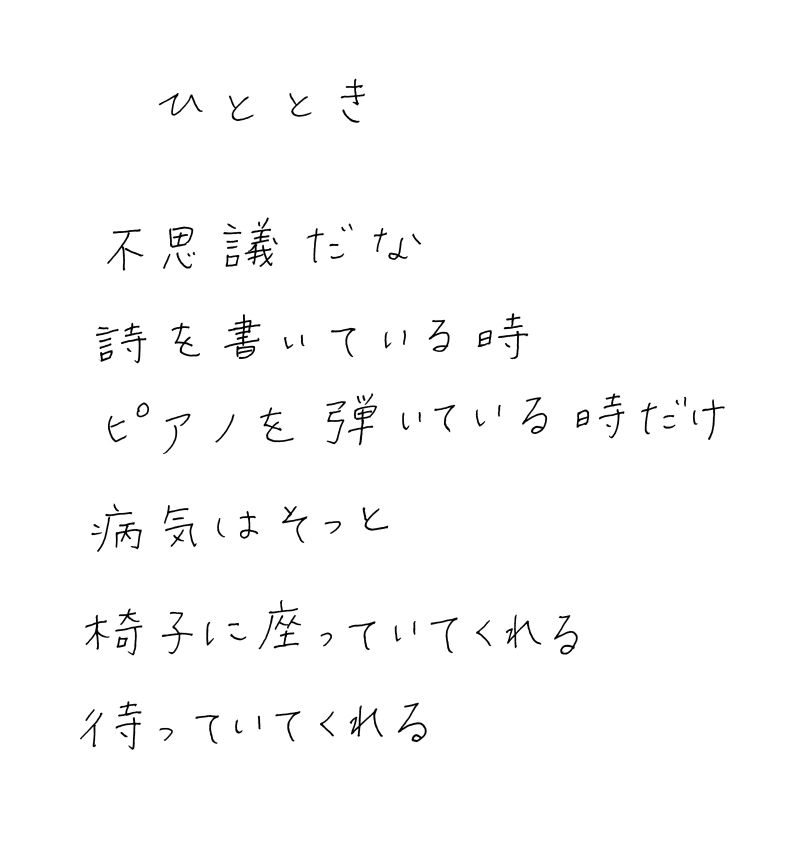 ひととき
不思議だな
詩を書いている時
ピアノを弾いている時だけ
病気はそっと
椅子に座っていてくれる
待っていてくれる